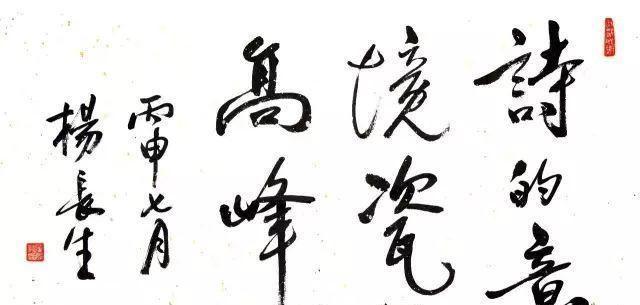 詩的意
境瓷
髙峰
丙申七月
楊長生